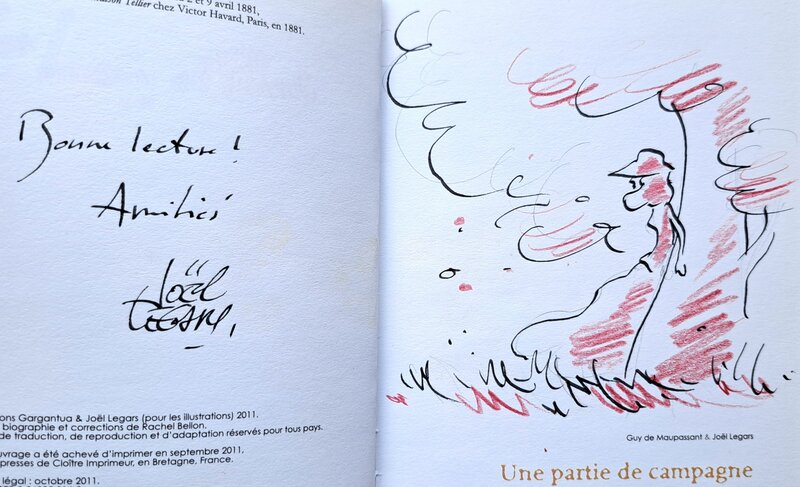 2 et 9 avril 1881,
Maison Tellier chez Victor Havard, Paris, en 1881.
Bonne lecture !
Amitiés
Joël
Legars
ons Gargantua & Joël Legars (pour les illustrations) 2011.
biographie et corrections de Rachel Bellon.
de traduction, de reproduction et d'adaptation réservés pour tous pays.
ouvrage a été achevé d'imprimer en septembre 2011,
presses de Cloître Imprimeur, en Bretagne, France.
légal : octobre 2011.
Guy de Maupassant & Joël Legars
Une partie de campagne